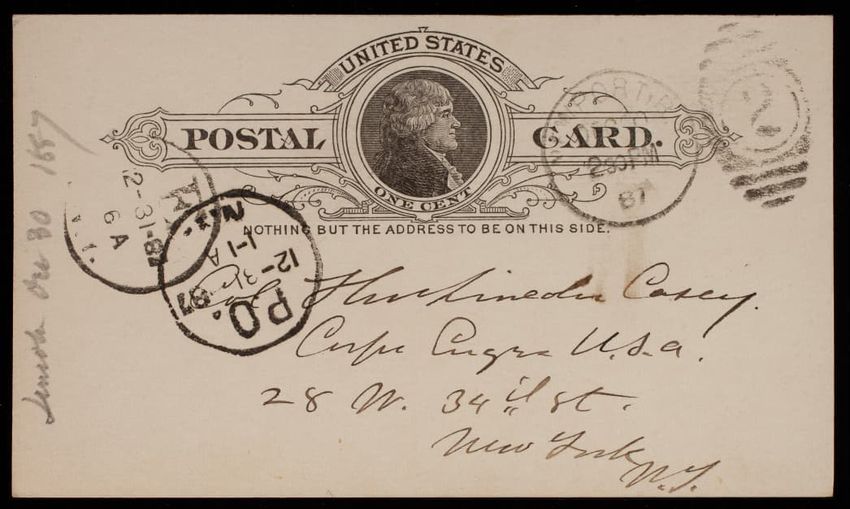 UNITED STATES
POSTAL CARD.
ONE CENT
NOTHING BUT THE ADDRESS TO BE ON THIS SIDE.
230PM
87
2
12-31-87
6A
N.Y.
1-1A
12-31
87
P.O.
Col Thos Lincoln Casey.
Corps Engrs U.S.A.
28 W. 34th St.
New York
N.Y.
Lincoln Dec 30 1887